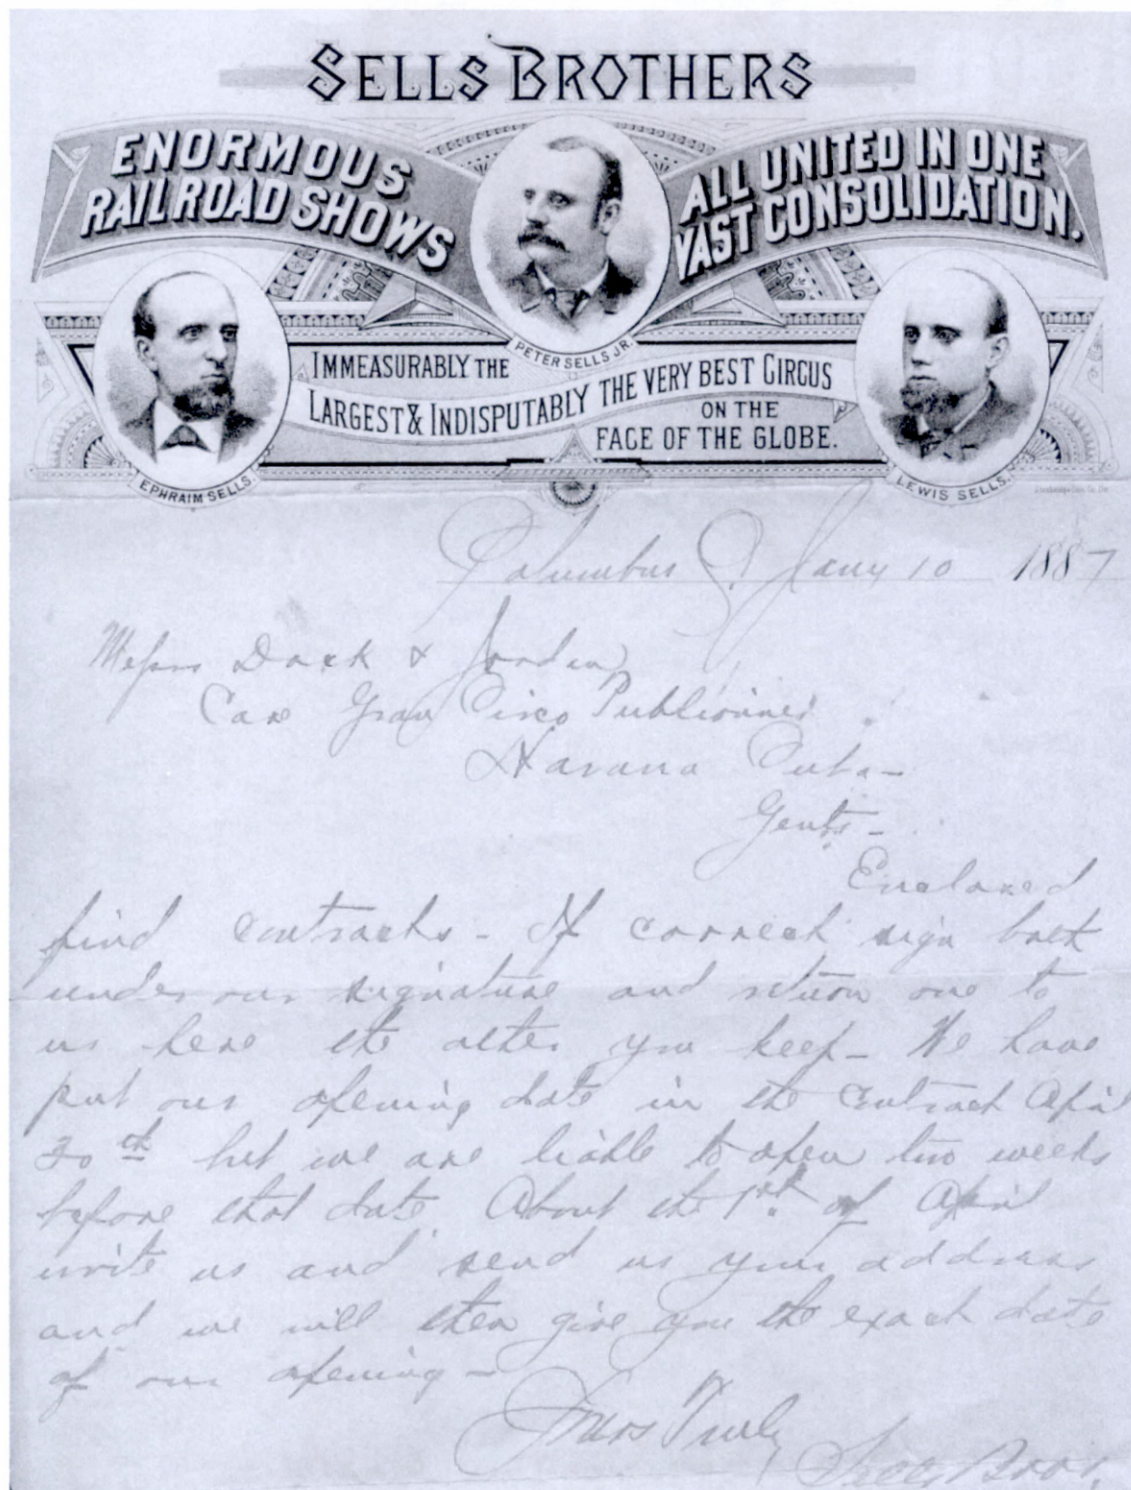 SELLS BROTHERS
ENORMOUS
RAILROAD SHOWS
ALL UNITED IN ONE
VAST CONSOLIDATION.
PETER SELLS JR.
IMMEASURABLY THE
LARGEST & INDISPUTABLY THE VERY BEST CIRCUS
ON THE
FACE OF THE GLOBE.
EPHRAIM SELLS.
LEWIS SELLS.
Columbus O. Jany 10 1887
Messrs & Jordan
Care Gran Circo Publiones
Havana Cuba-
Gents-
Enclosed
find contracts - If correct sign both
under our signature and return one to
us here the other you keep - We have
put our opening date in the contract April
30th but we are liable to open two weeks
before that date. About the 1st of April
write us and send us your address
and we will then give you the exact date
of our opening -
Yours Truly
Sells Bros.